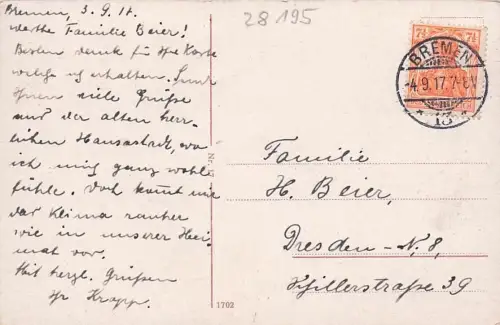 Bremen, 3.9.17.
28195
Werthe Familie Beier!
Besten Dank für Ihre Karte
erhalten. Sende
Ihnen viele Grüße
aus der alten herr-
lichen Hansastadt, wo
ich mich ganz wohl
fühle. Doch kommt mir
das Klima rauher
wie in unserer Hei-
mat vor.
Mit herzl. Grüßen
Ihr Krapp.
7½ 7½
BREMEN
-4.9.17.7-8V
13
Familie
H. Beier,
Dresden-N, 8,
Schillerstraße 39
1702